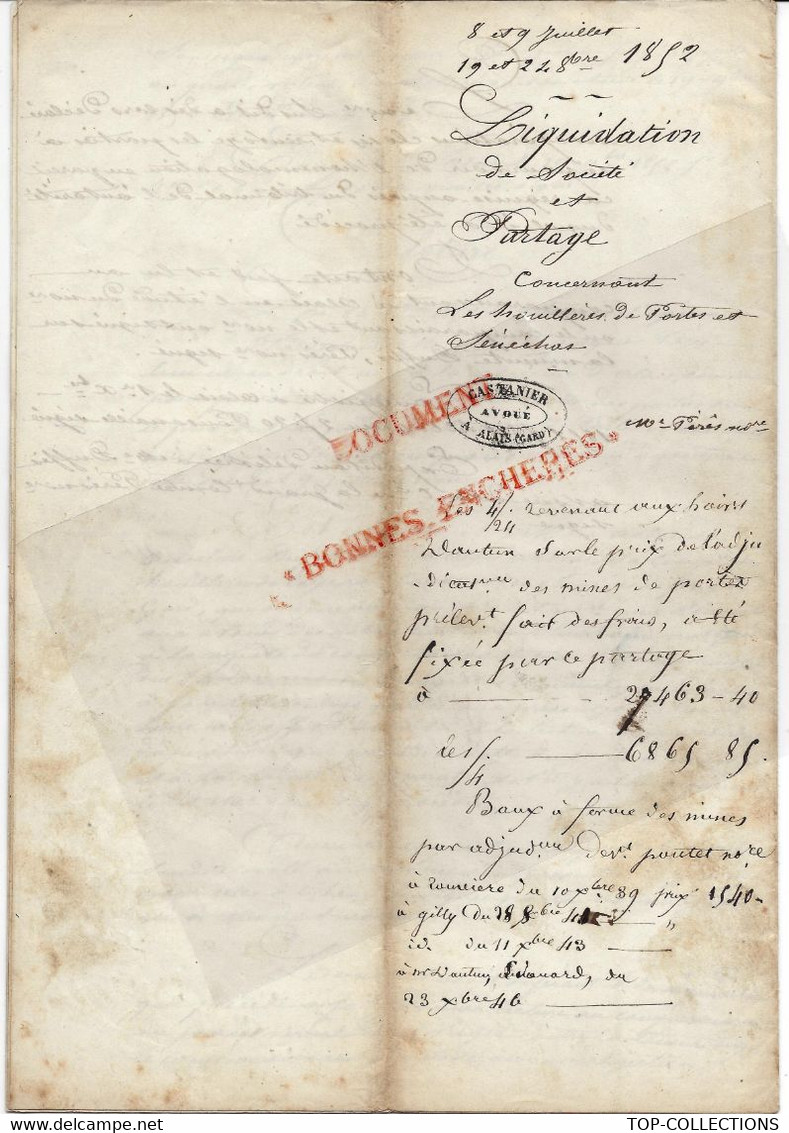 8 et 9 Juillet
19 et 24 8bre 1852
Liquidation
de Société
et
Partage
Concernant
Les houillères de Portes et
Sénéchas
CASTANIER
AVOUÉ
A ALAIS (GARD)
DOCUMENT
"BONNES ENCHERES"
Me Pérès nore
Les 4/24 revenant aux hoirs
Dautun sur le prix de l'adju
dicaon des mines de portes
prélevt fait des frais, a été
fixée par ce partage
à — 27463-40
les /4 — 6865 85.
Baux à ferme des mines
par adjudon devt poutet nore
à du 10 xbre 39 prix 1540-
à gilly du 28 8bre 41 — "
id. du 11 xbre 43 —
à Mr Dautun Édouard, du
23 xbre 46 —
TOP-COLLECTIONS